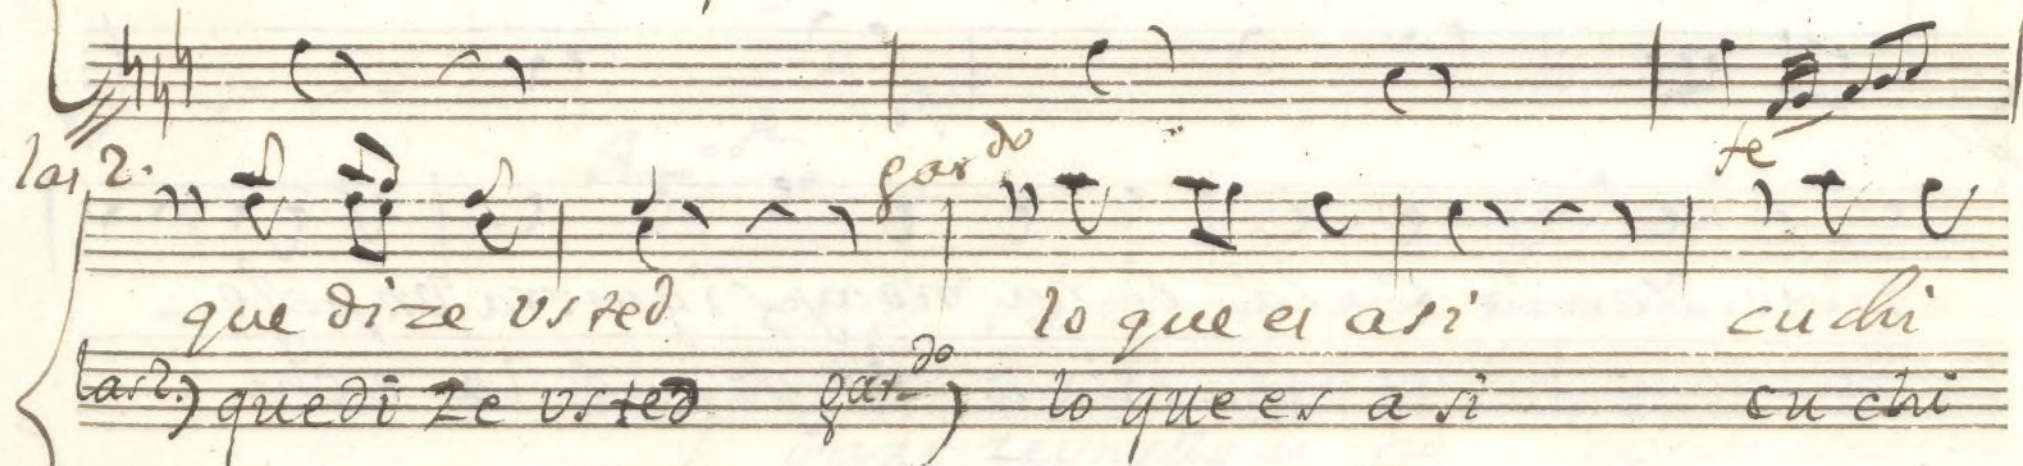 las 2. gar do fe
que dize vsted lo que es asi cu chi
las 2.) que di ze vsted gar do) lo que es a si cu chi